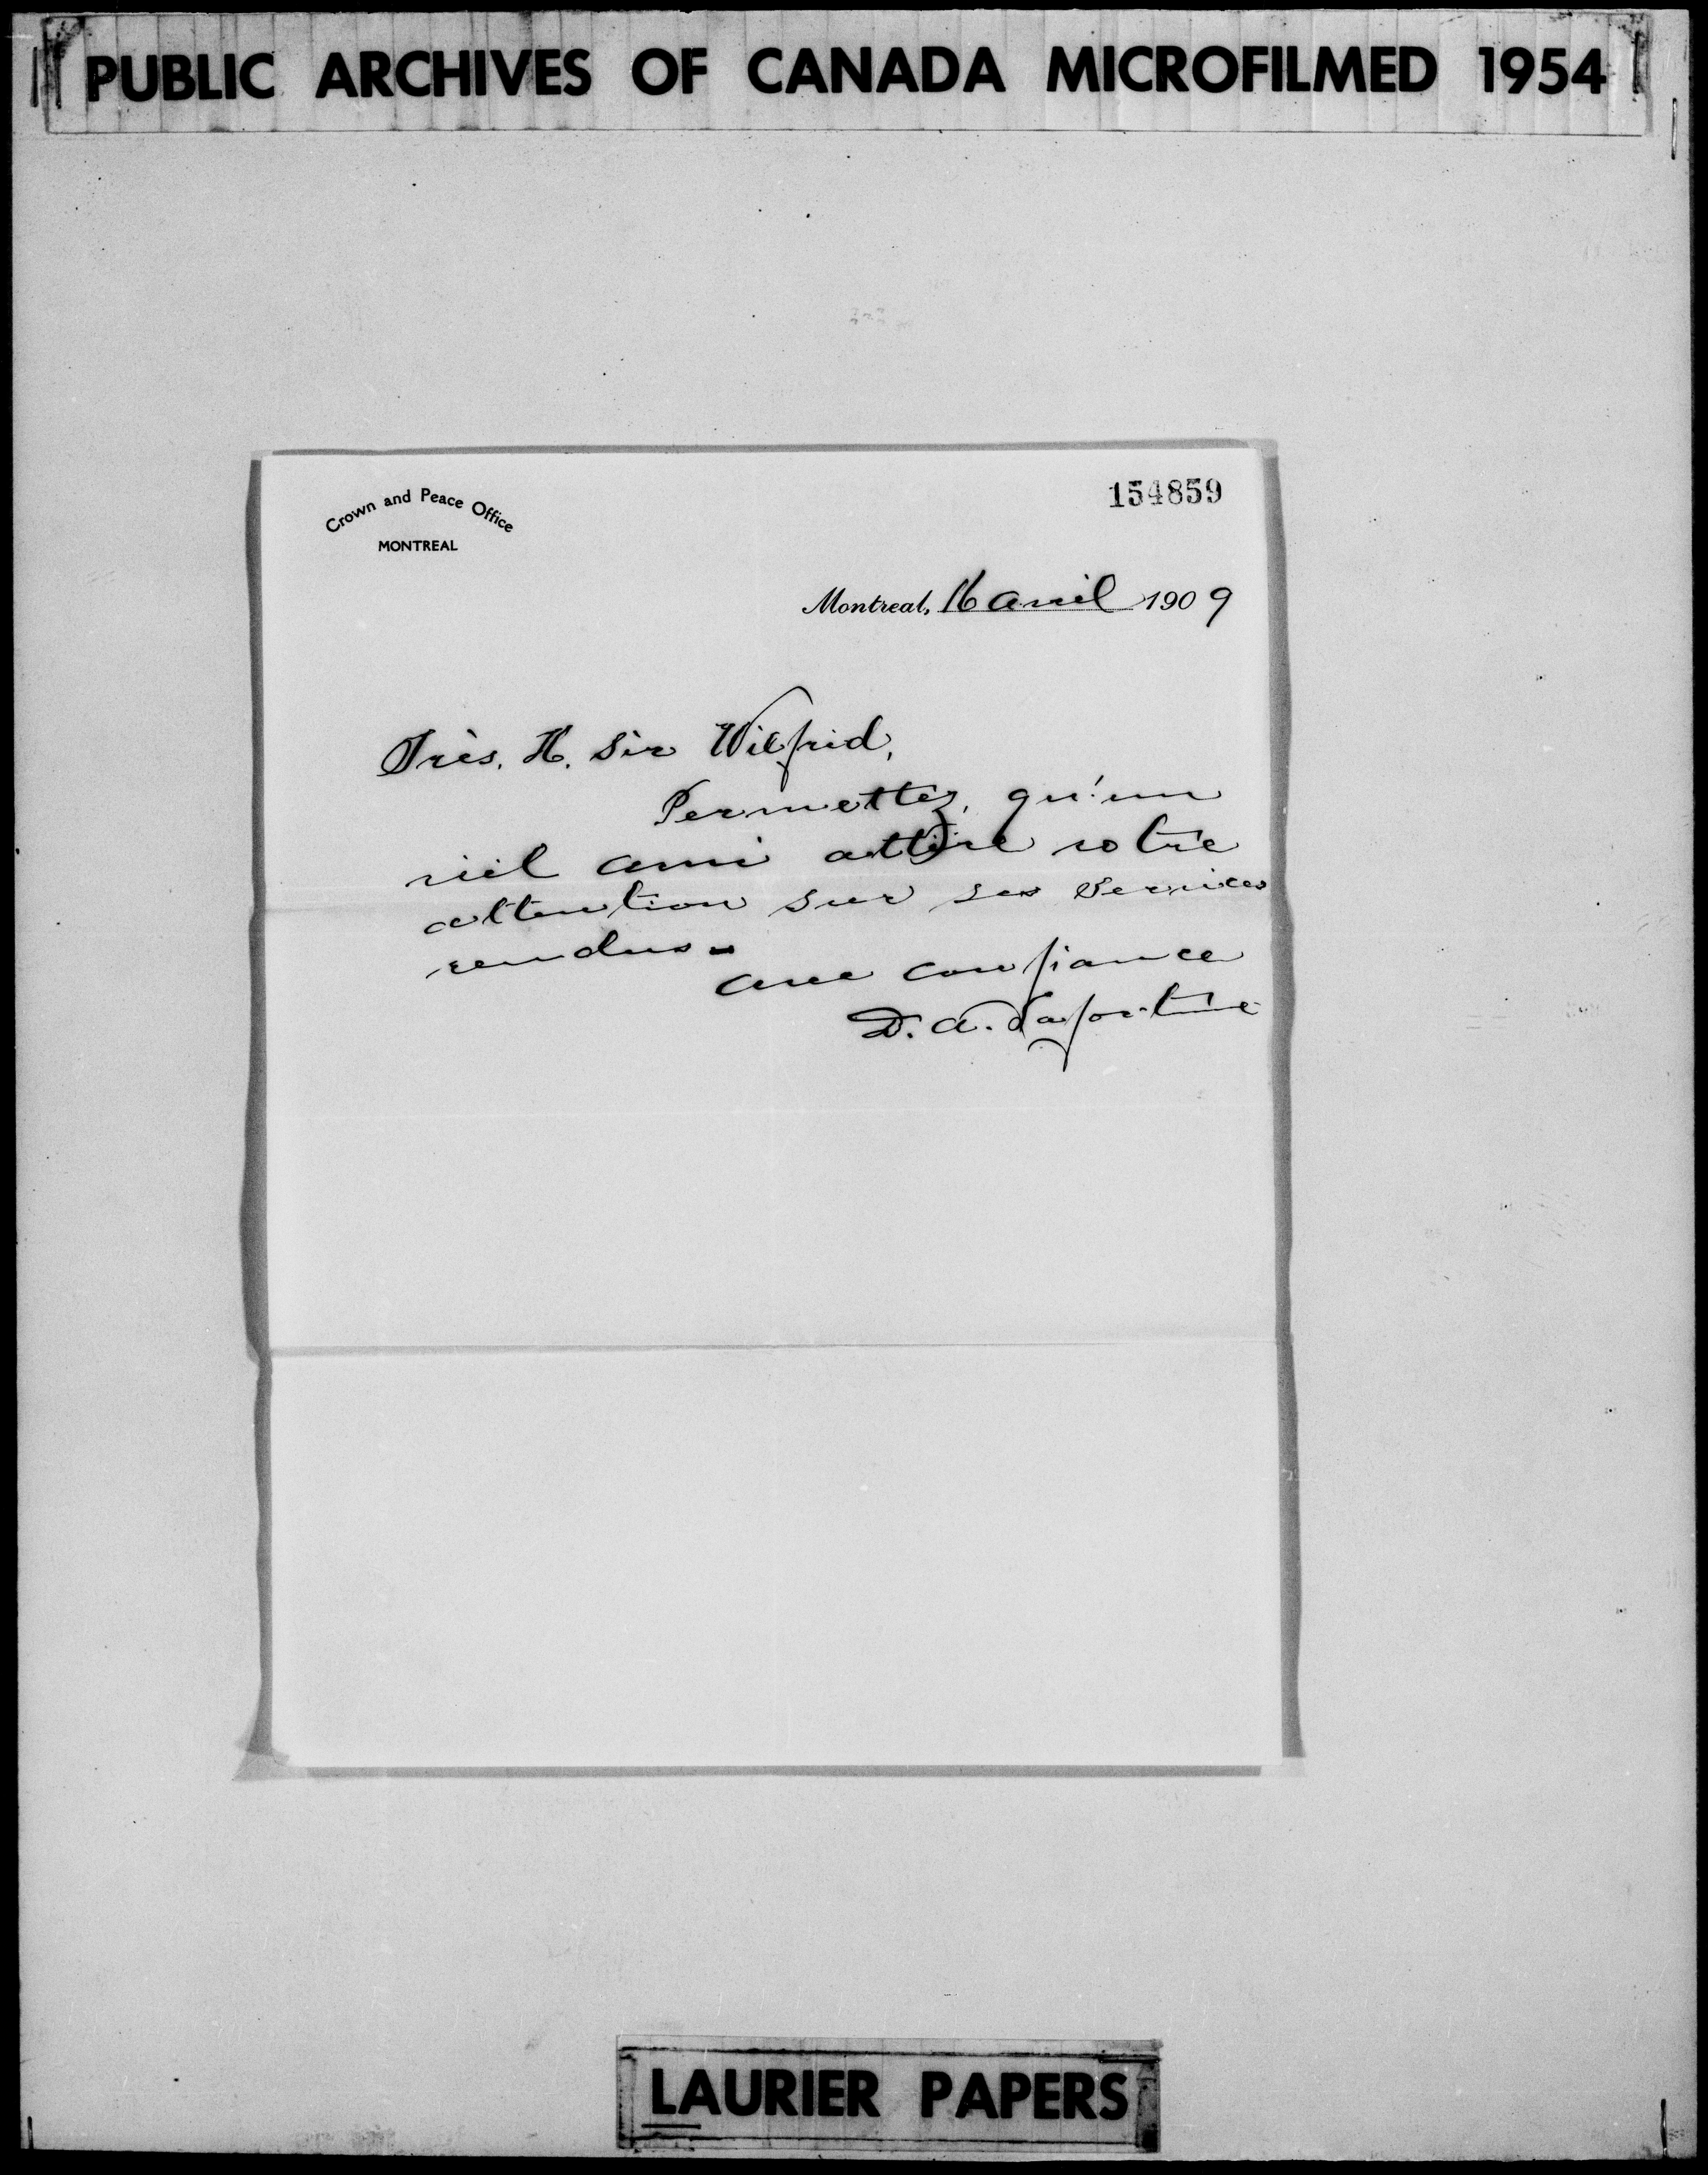 PUBLIC ARCHIVES OF CANADA MICROFILMED 1954
154859
Crown and Peace Office
MONTREAL
Montreal, 16 avril 1909
Très. H. Sir Wilfrid,
Permettez, qu'un
vieil ami attire votre
attention sur ses services
rendus.
avec confiance
D. A. Lafortune
LAURIER PAPERS